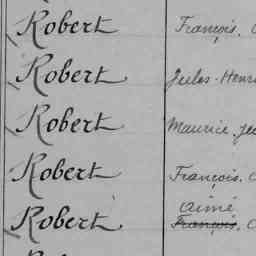 Robert François.
Robert Jules-Henri
Robert Maurice
Robert François.
Aimé
Robert François,